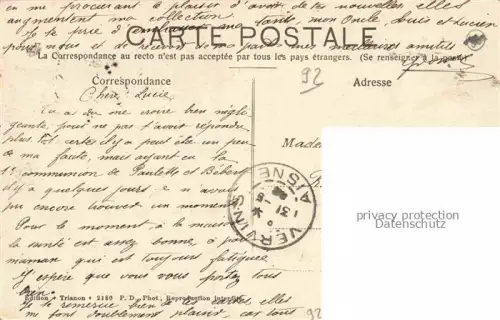 en me procurant le plaisir d'avoir de tes nouvelles elles
augmentent ma collection
Je te prie d'embrasser ma tante, mon Oncle, Louis et Lucien
pour nous et de recevoir de ma part mes meilleures amitiés
CARTE POSTALE
La Correspondance au recto n'est pas acceptée par tous les pays étrangers. (Se renseigner à la poste)
Correspondance
92
Adresse
Chère Lucie
Tu as du me croire bien négli
geante, pour ne pas t'avoir répondu
plus tôt, certes il y a peut être un peu
de ma faute, mais ayant eu la
1e communion de Paulette et Bébert
il y a quelques jours, je n'avais
pu encore trouver un moment
Pour le moment, à la maison
la santé est assez bonne, à part
maman qui est toujours fatiguée.
J'espère que vous vous portez tous
bien.
Je te remercie bien de tes cartes elles
me font doublement plaisir, car tout
Made
VERVINS
AISNE
Edition • Trianon • 2180 P. D. Phot. Reproduction interdite
92
privacy protection
Datenschutz